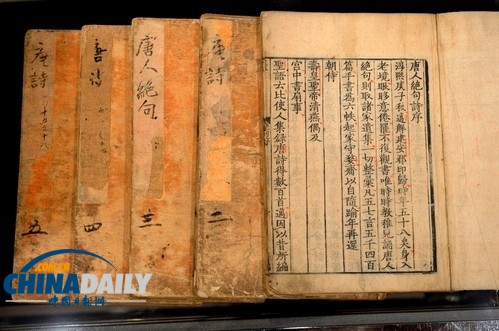 唐人絕句詩序
淳熙庚子秋邁解建安郡印歸時年五十八矣身入
老境眼眵意倦罷不復觀書唯時時教稚兒誦唐人
絕句則取諸家遺集一切整彙凡五七言五千四百
篇手書為六帙起家守婺齎以自隨踰年再還
朝侍
壽皇聖帝清燕偶及
宮中書扇事
聖語云比使人集錄唐詩得數百首邁因以昔所編
唐詩
二
唐人絕句
三
唐詩
四
唐詩
五
CHINADAILY
中国日报网